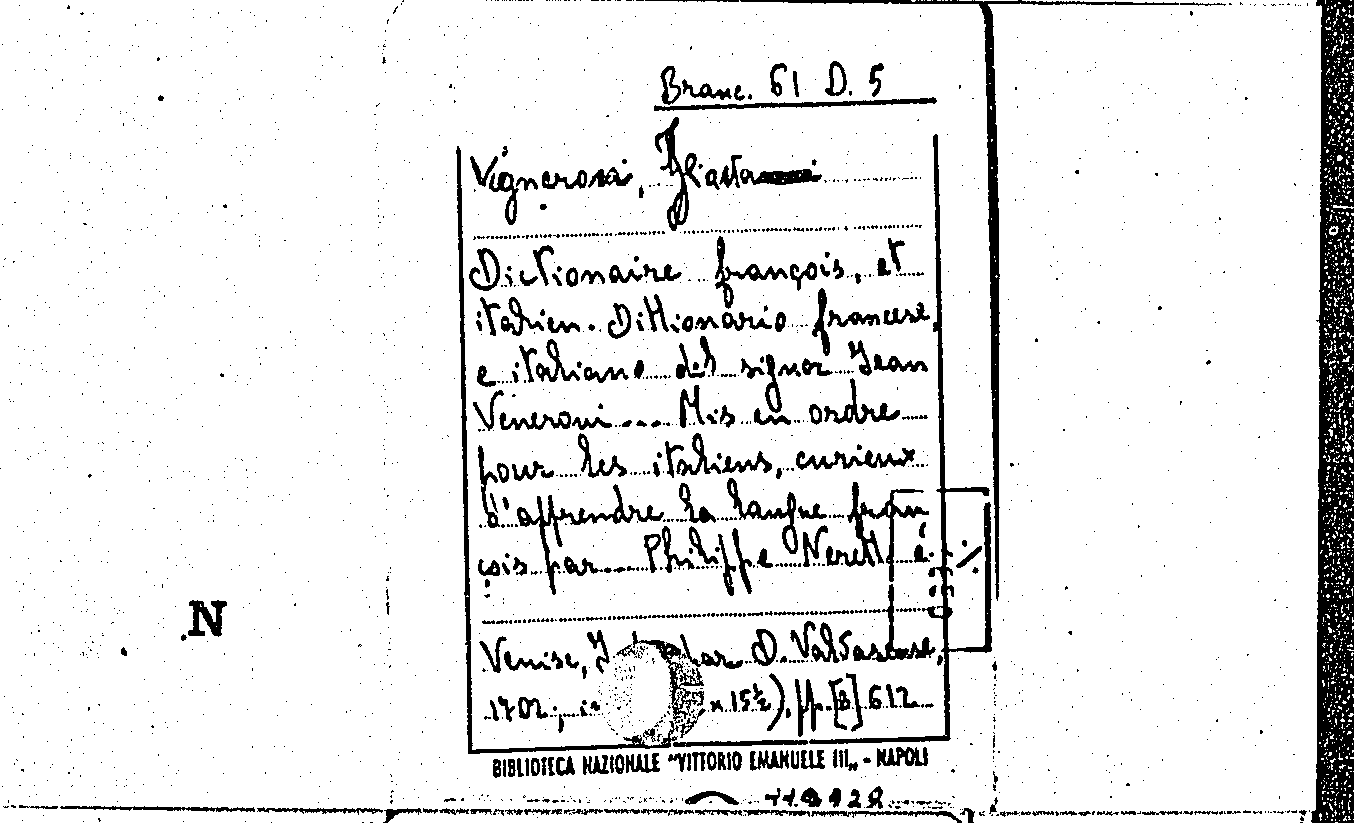 Branc. 61 D. 5
Vigneroni,
Dictionaire françois, et
italien. Dittionario francese,
e italiano del signor Jean
Veneroni ... Mis en ordre
pour les italiens, curieux
d'apprendre la langue fran
çois par ... Philippe Neretti e.
N
Venise, D. Valvasense,
1702; in x 15½), pp. [8] 612
BIBLIOTECA NAZIONALE "VITTORIO EMANUELE III„ - NAPOLI